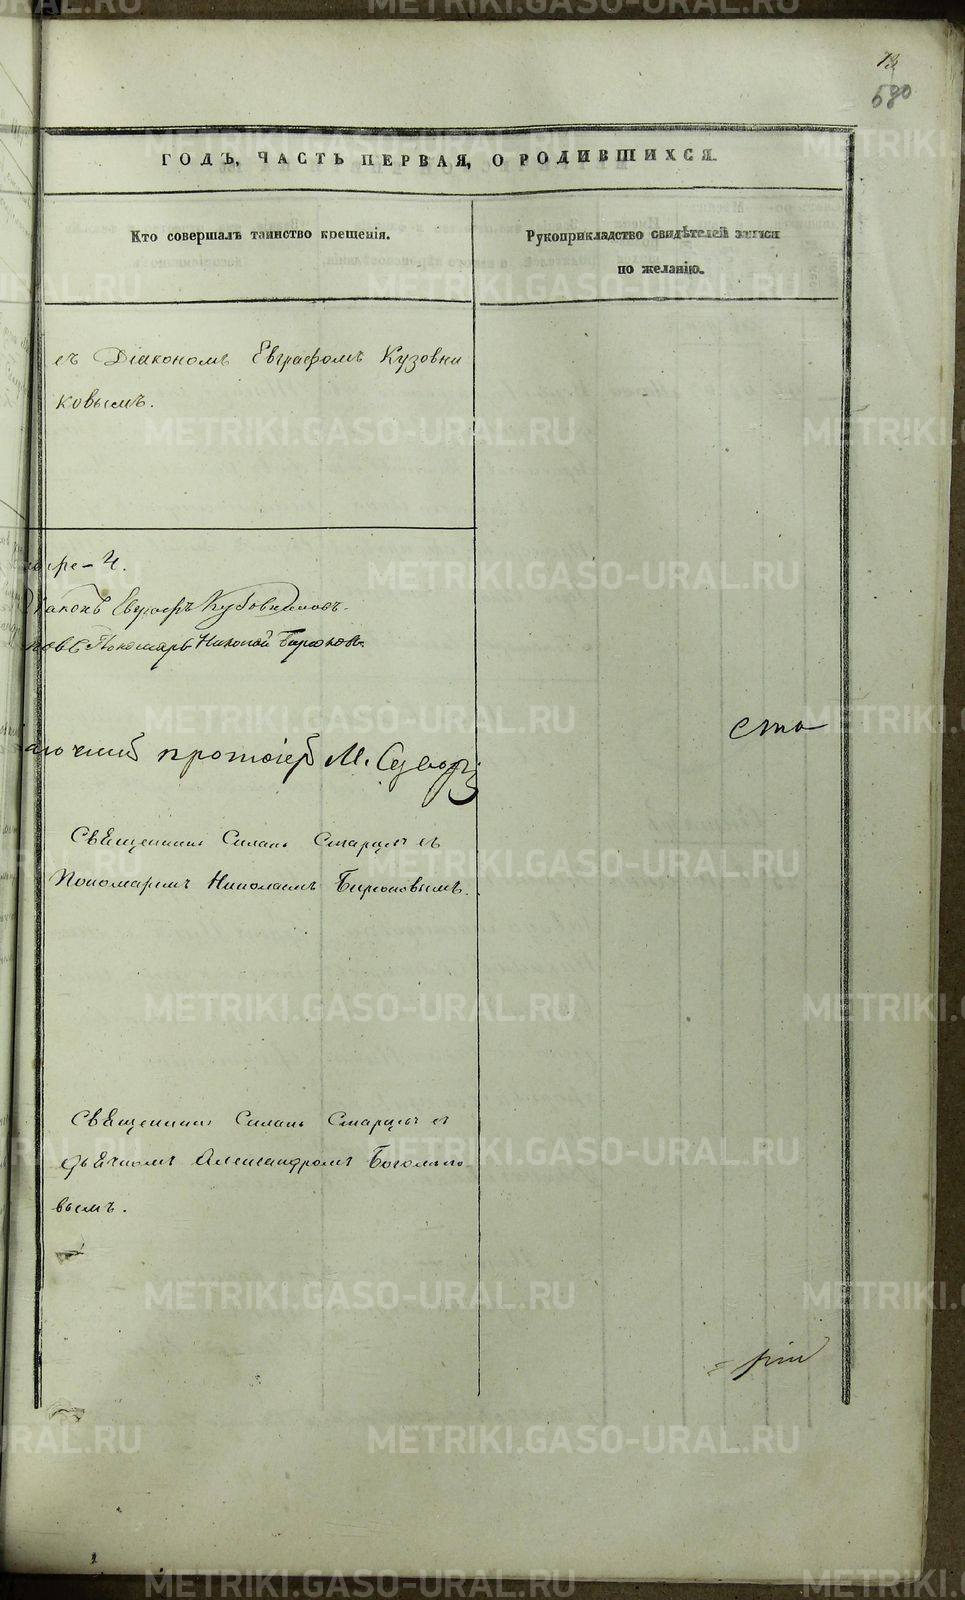 13
580
ГОДЪ, ЧАСТЬ ПЕРВАЯ, О РОДИВШИХСЯ.
Кто совершалъ таинство крещенія.
Рукоприкладство свидѣтелей записи по желанію.
съ Діакономъ Евграфомъ Кузовни
ковымъ.
Евграфъ Кузовниковъ.
Пономарь Николай Бирюковъ.
протоіерей М.
сто
Священникъ Силанъ Старцевъ съ
Пономаремъ Николаемъ Бирюковымъ.
Священникъ Силанъ Старцевъ съ
дьячкомъ Александромъ Боголѣпо
вымъ.
METRIKI.GASO-URAL.RU